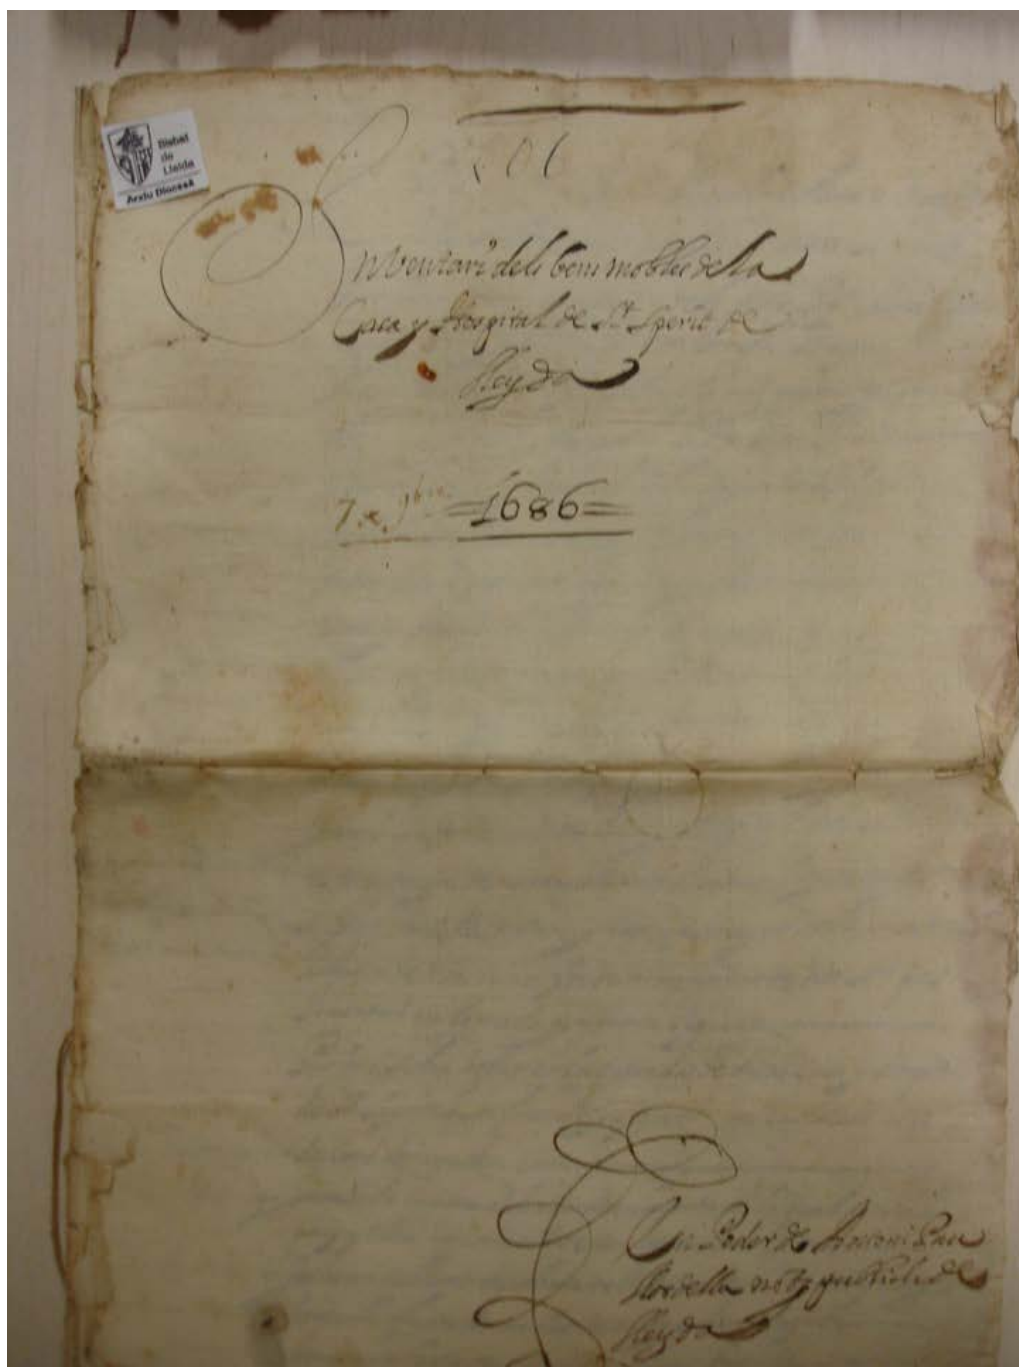 Bisbat
de
Lleida
Arxiu Diocesà
Inventari dels bens mobles de la
Casa y Hospital de St. Sperit de
Lleyda
7. x. 9bre =1686=
En Poder de Antoni Pau
not. publich de
Lleyda